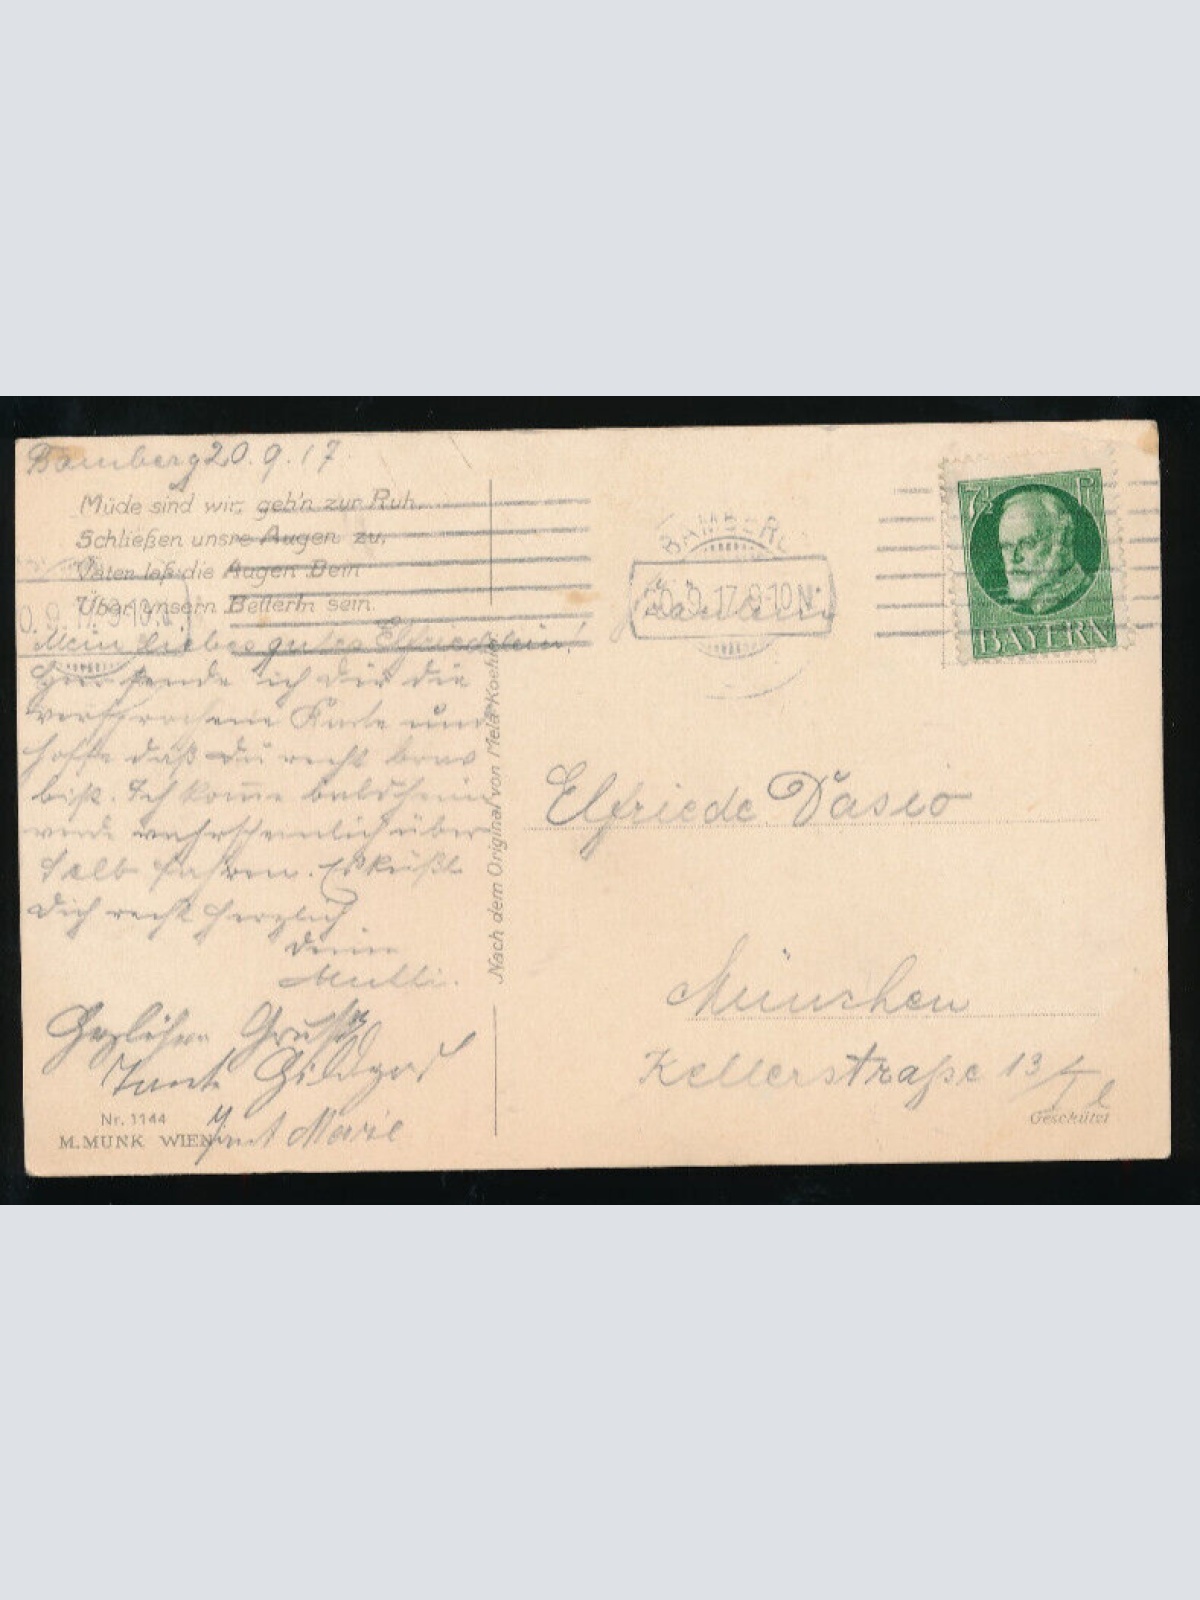 Bamberg 20.9.17.
Müde sind wir, geh'n zur Ruh,
Schließen unsre Augen zu,
Vater laß die Augen Dein
Über unsern Betterln sein.
Mein liebes gutes Elfriedelein!
Hier sende ich Dir die
versprochene Karte und
hoffe daß Du recht brav
bist. Ich komme bald heim
werde wahrscheinlich über
fahren. Es küßt
Dich recht herzlich
Deine
Mutti.
Herzlichen Gruß
Tante
Tant Marie
Nr. 1144
M. MUNK WIEN
Nach dem Original von Mela Koehler
BAMBERG
20.9.17.9-10N.
Fräulein
7½ P
BAYERN
Elfriede Dasio
München
Kellerstraße 13/I l
Geschützt